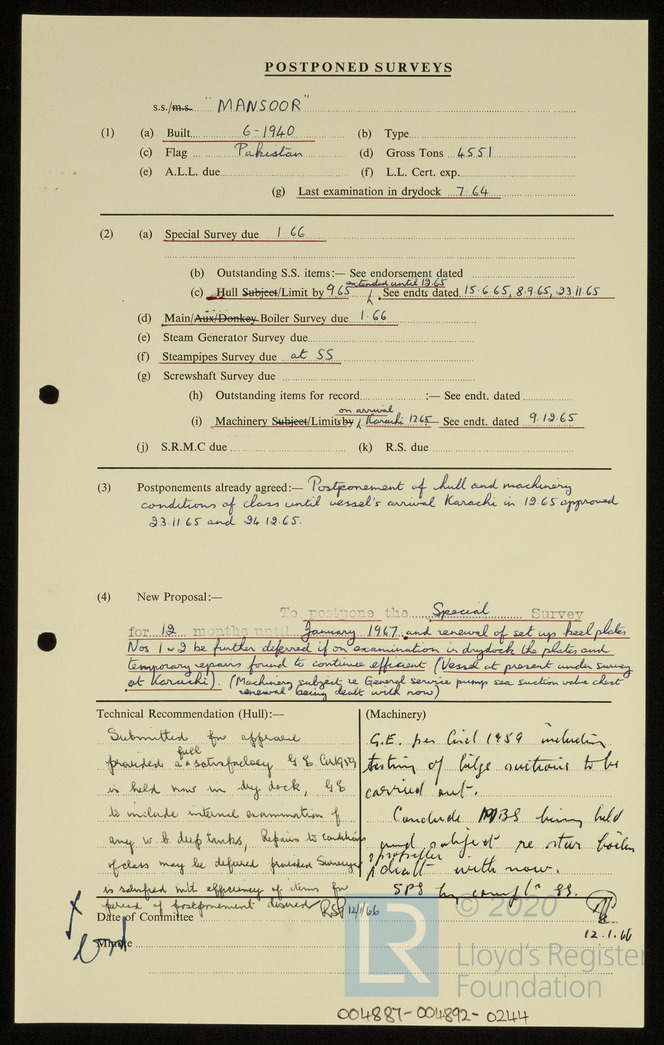 POSTPONED SURVEYS
s.s./m.s. "MANSOOR"
(1) (a) Built 6-1940 (b) Type
(c) Flag Pakistan (d) Gross Tons 4551
(e) A.L.L. due (f) L.L. Cert. exp.
(g) Last examination in drydock 7.64
(2) (a) Special Survey due 1 66
(b) Outstanding S.S. items:— See endorsement dated
extended until 12.65
(c) Hull Subject/Limit by 9.65 See endts dated 15.6.65, 8.9.65, 23.11.65
(d) Main/Aux/Donkey Boiler Survey due 1.66
(e) Steam Generator Survey due
(f) Steampipes Survey due at SS
(g) Screwshaft Survey due
(h) Outstanding items for record :— See endt. dated
on arrival
(i) Machinery Subject/Limits by Karachi 12.65 See endt. dated 9.12.65
(j) S.R.M.C due (k) R.S. due
(3) Postponements already agreed:— Postponement of hull and machinery
conditions of class until vessel's arrival Karachi in 12.65 approved
23.11.65 and 24.12.65.
(4) New Proposal:—
To postpone the Special Survey
for 12 months until January 1967 and renewal of set up keel plates
Nos 1 & 2 be further deferred if on examination in drydock the plates and
temporary repairs found to continue efficient (Vessel at present under survey
at Karachi). (Machinery subject re General service pump sea suction valve chest
renewal being dealt with now)
Technical Recommendation (Hull):— (Machinery)
Submitted for approval
provided a full & satisfactory G E Circ 1959
is held now in dry dock, GE
to include internal examination of
any w.b deep tanks, Repairs to conditions
of class may be deferred provided Surveyor
is satisfied with efficiency of items for
period of postponement desired RSP 12/1/66
G.E. per Circl 1959 including
testing of bilge suctions to be
carried out.
Conclude MBS being held
and subject re star boiler
& propeller
shaft with now.
SPS by compln SS.
12.1.66
Date of Committee
Minute
© 2020
LR
Lloyd's Register
Foundation
004887-004892-0244